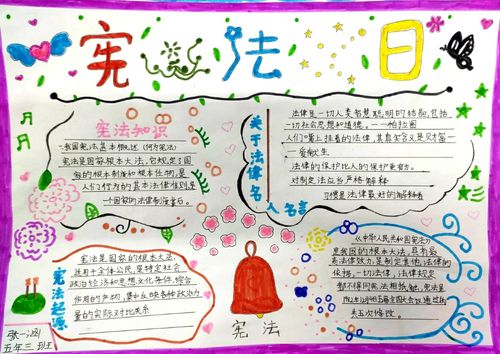 宪法日
宪法知识
我国宪法基本概述(何为宪法)
宪法是国家根本大法,它规定了国
家的根本制度和根本任务,是
人们行为的基本法律准则是
一个国家的法律制度
关于法律名人名言
法律是一切人类智慧聪明的结晶,包括一
切社会思想和道德。——柏拉图
人们嘴上挂着的法律,其真实含义是财富
——爱献生
法律的保护比人的保护更有力。
对制定法应当严格解释
习惯是法律最好的解释者
宪法起源
宪法是国家的根本大法,
适用于全体公民,是特定社会
政治经济和思想文化条件综合
作用的产物,集中反映各种政治力
量的实际对比关系
宪法
《中华人民共和国宪法》
是我国的根本大法,具有最
高法律效力,是制定其他法律的
依据,一切法律、法规
都不得同宪法相抵触,宪法是
五年三班